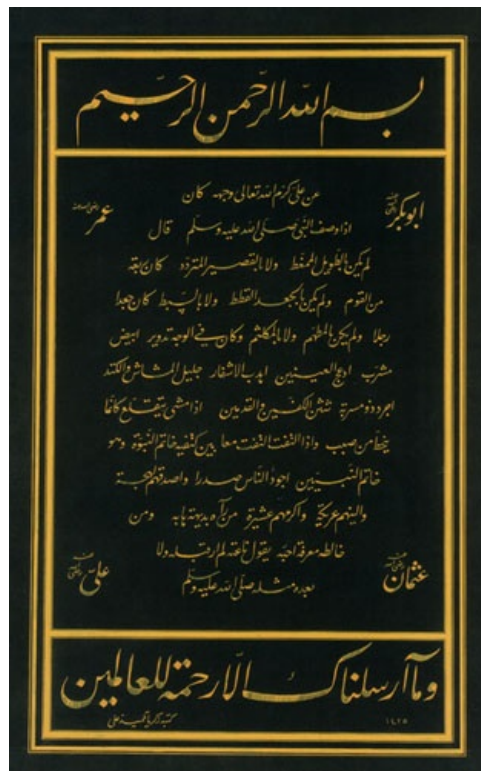 بسم الله الرحمن الرحيم
عن علي كرم الله تعالى وجهه كان
ابوبكر رضي الله عنه
عمر رضي الله عنه
اذا وصف النبي صلى الله عليه وسلم قال
لم يكن بالطويل الممغط ولا بالقصير المتردد كان ربعة
من القوم ولم يكن بالجعد القطط ولا بالسبط كان جعدا
رجلا ولم يكن بالمطهم ولا بالمكلثم وكان في الوجه تدوير ابيض
مشرب ادعج العينين اهدب الاشفار جليل المشاش والكتد
اجرد ذو مسربة شثن الكفين والقدمين اذا مشى يتقلع كانما
ينحط من صبب واذا التفت التفت معا بين كتفيه خاتم النبوة وهو
خاتم النبيين اجود الناس صدرا واصدقهم لهجة
والينهم عريكة واكرمهم عشيرة من رآه بديهة هابه ومن
خالطه معرفة احبه يقول ناعته لم ار قبله ولا
بعده مثله صلى الله عليه وسلم
عثمان رضي الله عنه
علي رضي الله عنه
وما آرسلناك الّا رحمة للعالمين
١٤٢٥
كتبه